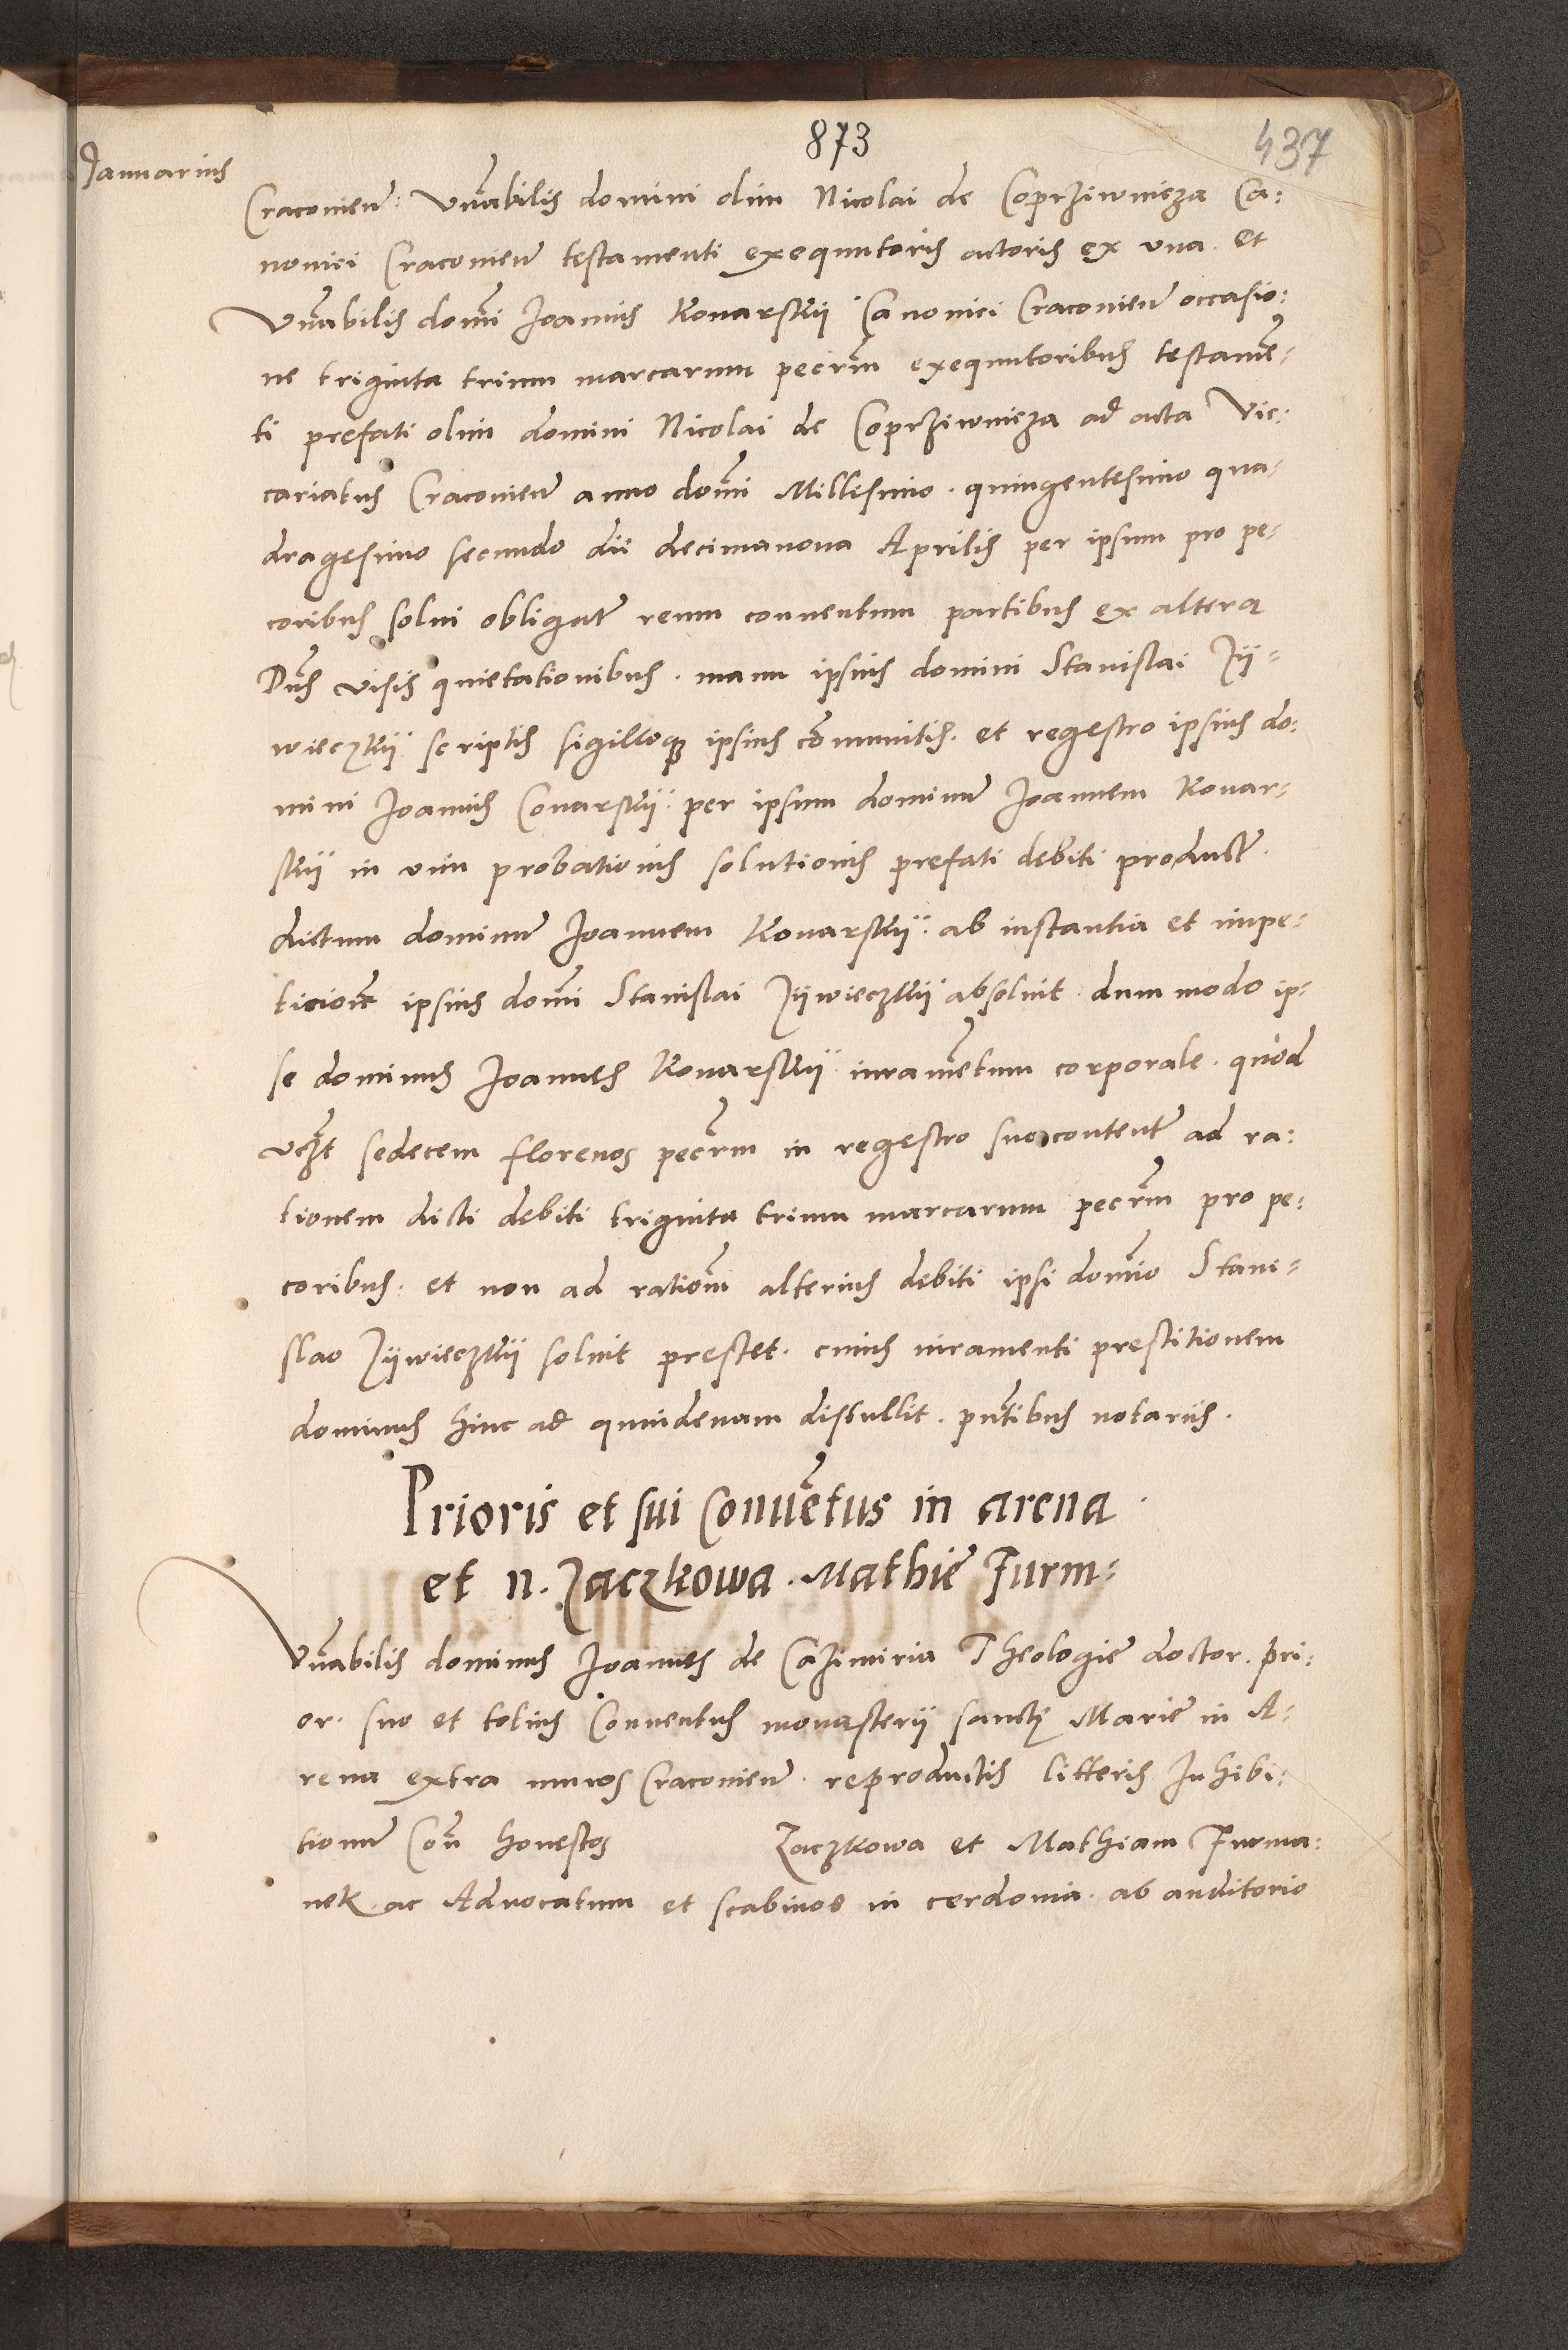 873
437
Januarius
Craconien̄: Vn̄abilis domini olim Nicolai de Coprziwnicza Ca:
nonici Craconien̄ testamenti exequutoris actoris ex vna. et
Vn̄abilis dom̄i Joannis Konarskÿ Canonici Craconien̄ occasio:
ne triginta trium marcarum pecr̄m exequutoribus testamē-
ti prefati olim domini Nicolai de Coprziwnicza ad acta Vic:
cariatus Craconien̄ anno dom̄i Millesimo. quingentesimo qua-
dragesimo secundo die decimanona Aprilis per ipsum pro pe-
coribus solui obligat̄ reum conuentum partibus ex altera
Dn̄s visis quietationibus. manu ipsius domini Stanislai Zÿ-
wieczkÿ scriptis sigilloq3 ipsius cōmunitis. et regestro ipsius do:
mini Joannis Conarskÿ. per ipsum dominū Joannem Konar-
skÿ in vim probationis solutionis prefati debiti product̄.
dictum dominū Joannem Konarskÿ. ab instantia et impe-
ticion̄e ipsius dom̄i Stanislai Zÿwieczkÿ absoluit. dum modo ip-
se dominus Joannes Konarskÿ. iuramētum corporale. quod
vcz̄t sedecem florenos pecr̄m in regestro suo content̄ ad ra:
tionem dicti debiti triginta trium marcarum pecr̄m pro pe:
coribus. et non ad ration̄m alterius debiti ipsi dom̄io Stani-
slao Zÿwieczkÿ soluit prestet. cuius iuramenti prestitionem
dominus hinc ad quindenam distullit. pn̄tibus notariis.
Prioris et sui Conuētus in arena.
et n. Zaczkowa. Mathiē Furm-
Vn̄abilis dominus Joannes de Cazimiria Theologiē doctor. pri:
or. suo et totius Conuentus monasterÿ sanctę Mariē in A-
rena extra muros Craconien̄. reproductis litteris Inhibi-
tionū Con̄ honestos Zaczkowa et Mathiam Furma:
nek. ac Aduocatum et scabinos in cerdonia. ab auditorio